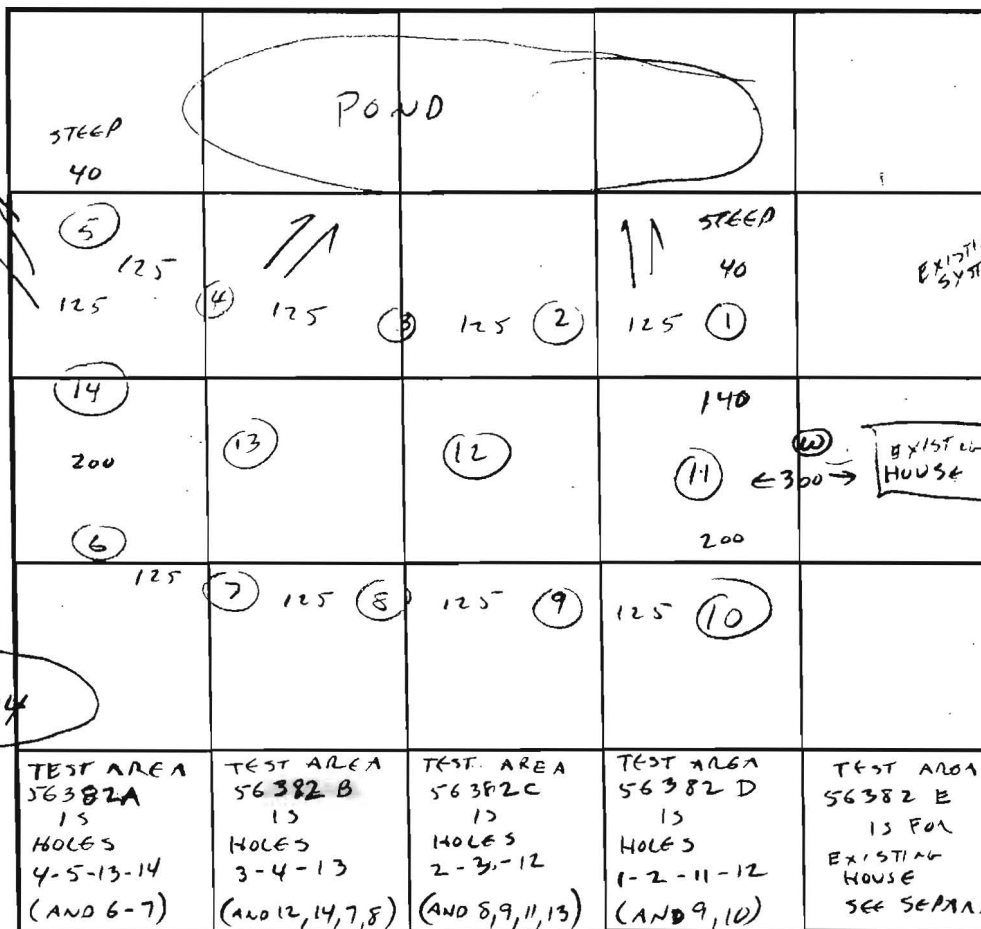 POND
STEEP
40
5
STEEP
125
4
125
125
3
125
2
125
40
1
14
140
200
13
12
11
W
←300→
EXISTING
HOUSE
6
200
125
7
125
8
125
9
125
10
TEST AREA
56382A
IS
HOLES
4-5-13-14
(AND 6-7)
TEST AREA
56382 B
IS
HOLES
3-4-13
(AND 12, 14, 7, 8)
TEST AREA
56382C
IS
HOLES
2-3-12
(AND 8, 9, 11, 13)
TEST AREA
56382 D
IS
HOLES
1-2-11-12
(AND 9, 10)
TEST AREA
56382 E
IS FOR
EXISTING
HOUSE
SEE